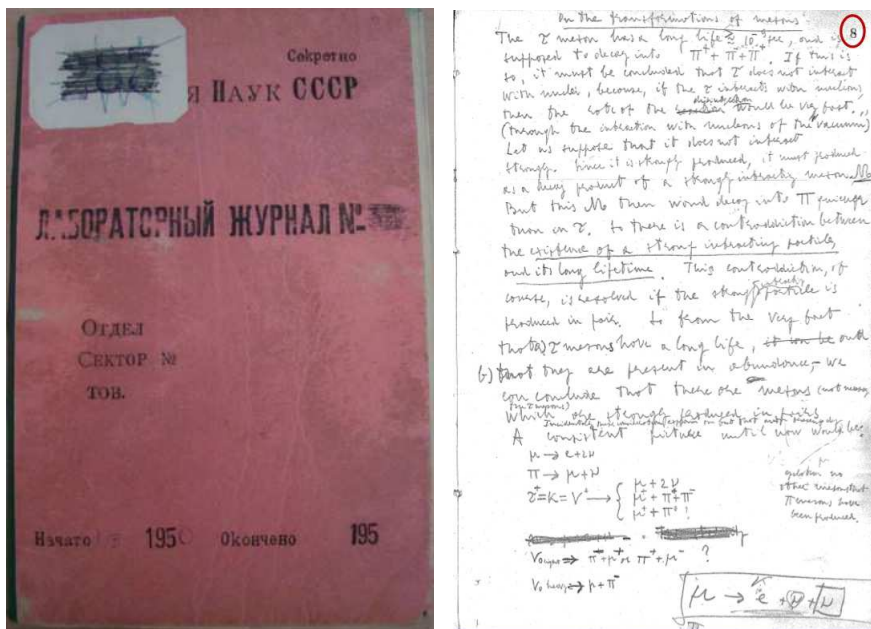 Секретно
я Наук СССР
ЛАБОРАТОРНЫЙ ЖУРНАЛ №
Отдел
Сектор №
тов.
Начато 1950 Окончено 195
8
On the transformations of mesons
The τ meson has a long life ≥ 10⁻⁹ sec, and is
supposed to decay into π⁺ + π⁻ + π⁺. If this is
so, it must be concluded that τ does not interact
with nuclei, because, if the τ interacts with nucleons,
then the rate of the disintegration would be very fast.
(through the interaction with nucleons of the vacuum)
Let us suppose that it does not interact
strongly. Since it is strongly produced, it must produced
as a decay product of a strongly interacting meson M
But this M then would decay into π quicker
than in τ. So there is a contradiction between
the existence of a strong interacting particle
and its long lifetime. This contradiction, of
course, is resolved if the strong interacting particle is
produced in pair. So from the very fact
that a) τ mesons have a long life, and
b) that they are present in abundance, we
can conclude that there are mesons (not necess.
which are strongly produced in pairs
A consistent picture until now would be:
μ → e + 2ν
π → μ + ν
τ⁺ = K = V⁺ → { μ + 2ν
μ⁺ + π⁺ + π⁻
μ⁺ + π⁰ !
π⁺ + μ⁻ ?
→ p + π⁻
other
π mesons have
been produced.
μ → e + ν + ν
π